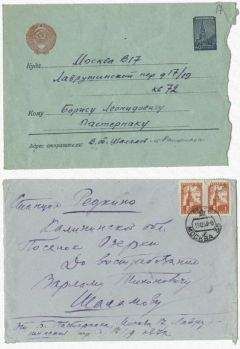 Куда Москва В17
Лаврушинский пер д 17/19
кв 72
Кому Борису Леонидовичу
Пастернаку
Адрес отправителя: В.Т. Шаламов
Станция Редкино
Калининской обл.
Поселок Озерки
До востребования
Варламу Тихоновичу
Шаламову
МОСКВА